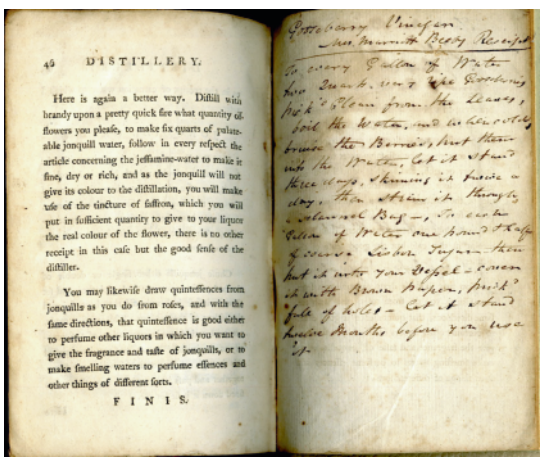 46 DISTILLERY.
Here is again a better way. Distill with
brandy upon a pretty quick fire what quantity of
flowers you please, to make six quarts of palate-
able jonquill water, follow in every respect the
article concerning the jessamine-water to make it
fine, dry or rich, and as the jonquill will not
give its colour to the distillation, you will make
use of the tincture of saffron, which you will
put in sufficient quantity to give to your liquor
the real colour of the flower, there is no other
receipt in this case but the good sense of the
distiller.
You may likewise draw quintessences from
jonquils as you do from roses, and with the
same directions, that quintessence is good either
to perfume other liquors in which you want to
give the fragrance and taste of jonquils, or to
make smelling waters to perfume essences and
other things of different sorts.
FINIS.
Gooseberry Vinegar
Mrs. Marriott Receipt
To every Gallon of Water
two Quarts, very ripe Gooseberrys
pick'd Clean from the leaves,
boil the Water, and when cold,
bruise the Berries, put them
into the Water, let it stand
three days, skiming it twice a
day, then strain it through
a flannel Bag -, To each
Gallon of Water one pound & half
of coarse Lisbon Sugar - then
put it into your Vessel - cover
it with Brown Paper, prick'd
full of holes - let it stand
twelve Months before you use
it